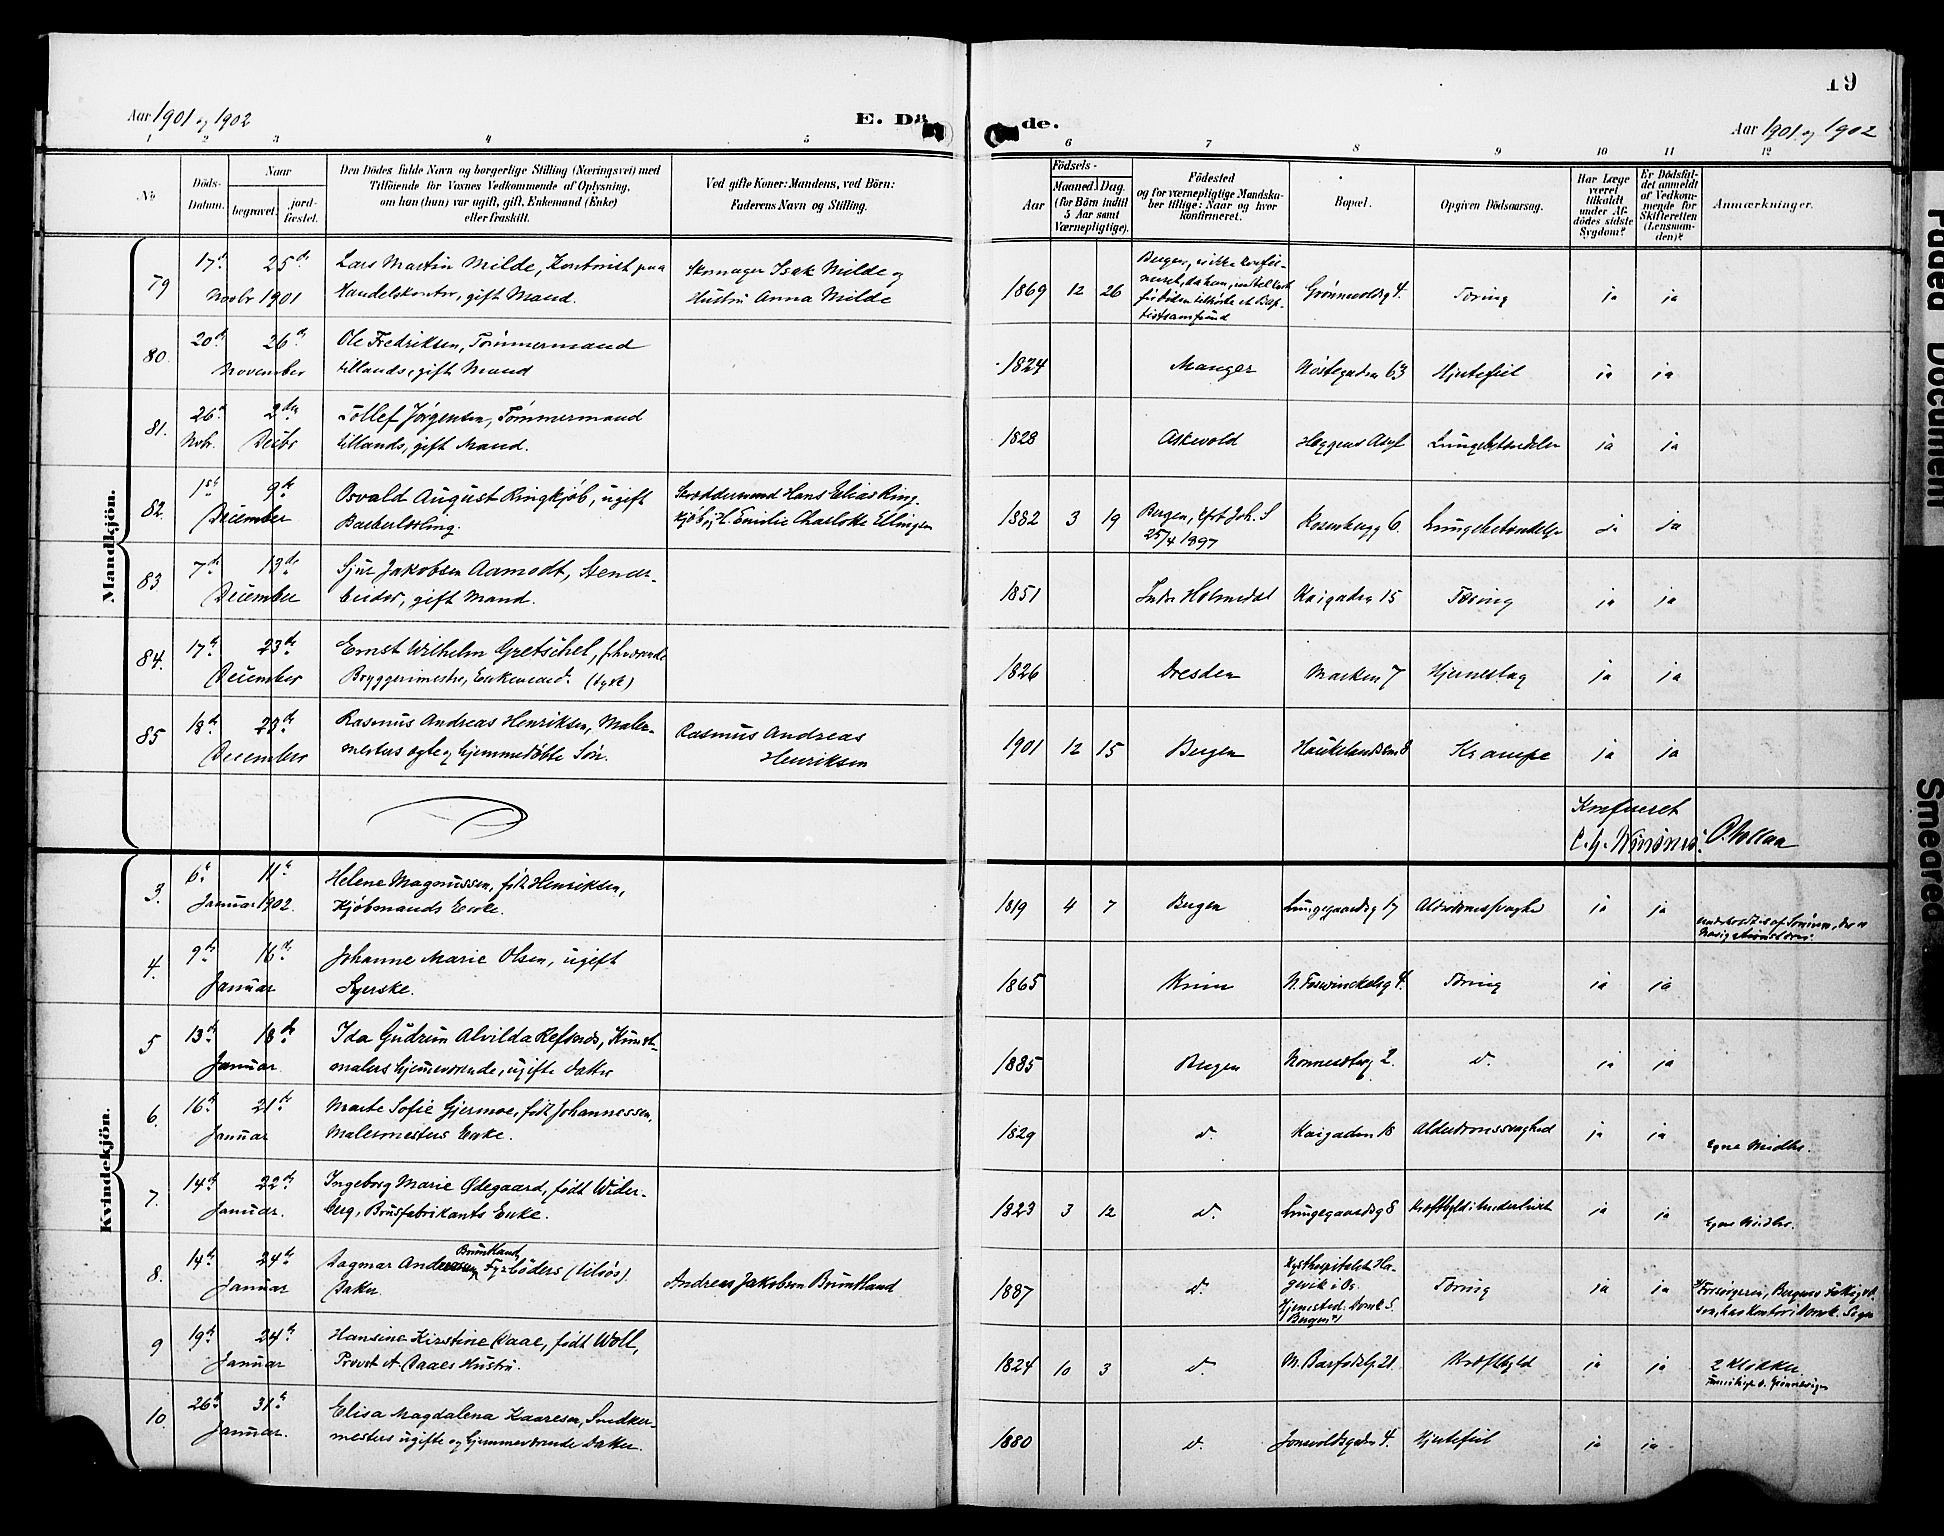 19
Aar 1901 og 1902
E. Dö de.
Aar 1901 og 1902
1 2 3 4 5 6 7 8 9 10 11 12
No
Döds-
Datum.
Naar
begravet.
jord-
fæstet.
Den Dödes fulde Navn og borgerlige Stilling (Næringsvei) med
Tilföiende for Voxnes Vedkommende af Oplysning,
om han (hun) var ugift, gift, Enkemand (Enke)
eller fraskilt.
Ved gifte Koner: Mandens, ved Börn:
Faderens Navn og Stilling.
Födsels-
Aar
Maaned. Dag.
(for Börn indtil
5 Aar samt
Værnepligtige).
Födested
og for værnepligtige Mandska-
ber tillige: Naar og hvor
konfirmeret.
Bopæl.
Opgiven Dödsaarsag.
Har Læge
været
tilkaldt
under Af-
dödes sidste
Sygdom?
Er Dödsfal-
det anmeldt
af Vedkom-
mende for
Skifteretten
(Lensman-
den)?
Anmærkninger.
Mandkjön.
79 17de 25de Lars Martin Milde, Kontorist paa Skomager Isak Milde og
Novbr 1901 Handelskontor, gift Mand. Hustru Anna Milde
1869 12 26 Bergen, ikke konfir-
meret, da han
Grønnevoldsg 4. Tæring ja ja
80. 20de 26de Ole Fredriksen, Tømmermand
November tillands, gift Mand
1824 Manger Nøstegaden 63 Hjertefeil ja ja
81. 26de 2den Tollef Jørgensen, Tømmermand
Nov. Decbr tillands, gift Mand.
1828 Askevold Heggens Asyl Lungebetændelse ja ja
82. 1ste 9de Osvald August Ringkjøb, ugift Skræddersvend Hans Elias Ring-
December Barberlærling. kjøb, H. Emilie Charlotte Ellingsen
1882 3 19 Bergen, Joh. S
25/4 1897
Rosenbergg 6. Lungebetændelse ja ja
83 7de 13de Sjur Jakobsen Aamodt, Stenar-
December beider, gift Mand.
1851 Indre Holmedal Kaigaden 15 Tæring ja ja
84. 17de 23de Ernst Wilhelm Gretschel, fhværende
December Bryggerimester, Enkemand. (tysk)
1826 Dresden Marken 7 Hjerneslag ja ja
85 18de 23de Rasmus Andreas Henriksen, Maler- Rasmus Andreas
December mesters ægte og hjemmedøbte Søn. Henriksen
1901 12 15 Bergen Haukelandsvn 8 Krampe ja ja
Konfereret
Kvindekjön.
3. 6te 11te Helene Magnussen, født Henriksen,
Januar 1902. Kjøbmands Enke.
1819 4 7 Bergen Lungegaardsg 17 Alderdomssvaghed ja ja
4. 9de 16de Johanne Marie Olsen, ugift
Januar Syerske.
1865 N. Forswinckelsg 4. Tæring ja ja
5 13de 18de Ida Gudrun Alvilda Refsnæs, Kunst-
Januar malers hjemmeværende, ugifte Datter
1885 Bergen Nonnesæterg 2. d. ja ja
6. 16de 21de Marte Sofie Gjermoe, født Johannessen,
Januar Malermesters Enke.
1829 d. Kaigaden 18 Alderdomssvaghed ja ja Egne Midler.
7. 14de 22de Ingeborg Marie Ødegaard, født Wider-
Januar. berg, Brusfabrikants Enke.
1823 3 12 d. Lungegaardsg 8 Kræftbyld i Underlivet ja ja Egne Midler.
Bruntland,
8. 14de 24de Dagmar Andersen, Fyrbøders (tilsøs) Andreas Jakobsen Bruntland
Januar Datter
1887 d. Kysthospitalet Ha-
gevik i Os.
Hjemsted: Domk. S.
Bergen
Tæring ja ja Forsørgeren, Bergens
9 19de 24de Hansine Kirstine Daae, født Woll,
Januar Provst A. Daaes Hustru.
1824 10 3 d. N. Barfodsg 21. Kræftbyld ja ja 2 Klokker
10. 26de 31te Elisa Magdalena Kaaresen, Snedker-
Januar. mesters ugifte og hjemmeværende Datter.
1880 d. Jonsvoldsgaden 4. Hjertefeil ja ja
Faded Document
Smeared